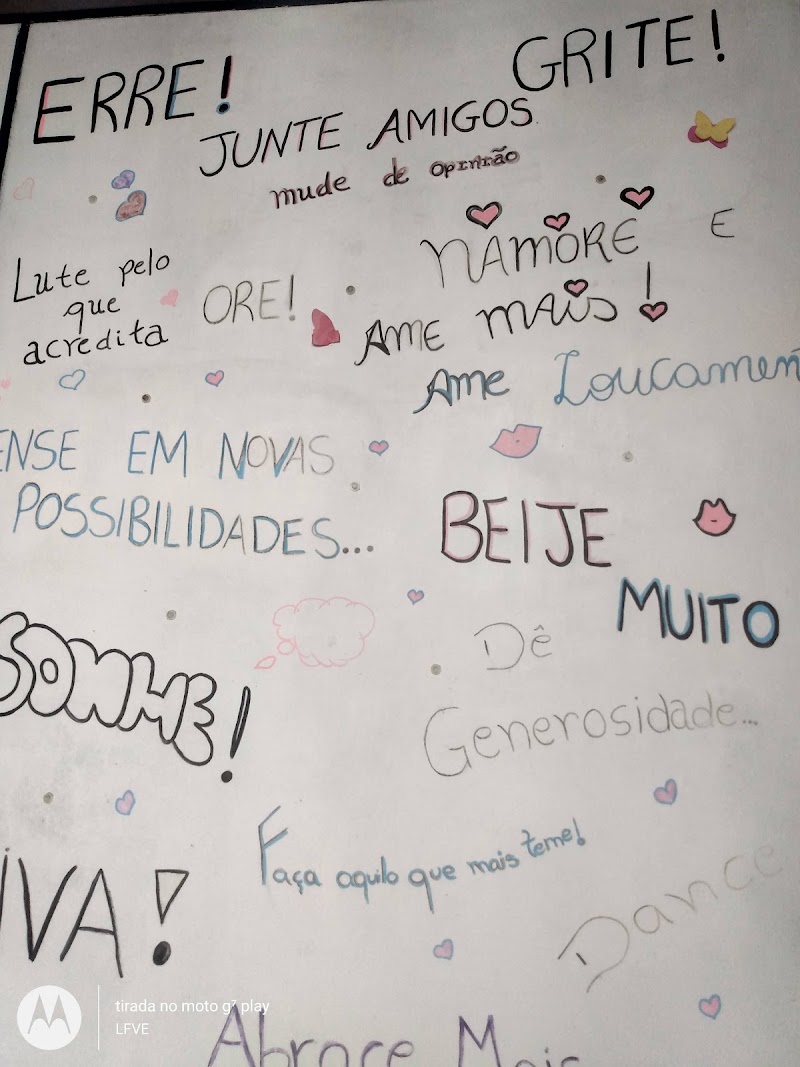 ERRE!
GRITE!
JUNTE AMIGOS
mude de opinião
Lute pelo
que
acredita
ORE!
NAMORE E
AME MAIS!
AME Loucamen
ENSE EM NOVAS
POSSIBILIDADES...
BEIJE
MUITO
SONHE!
Dê
Generosidade...
IVA!
Faça aquilo que mais teme!
Dance
Abrace Mais
tirada no moto g⁷ play
LFVE